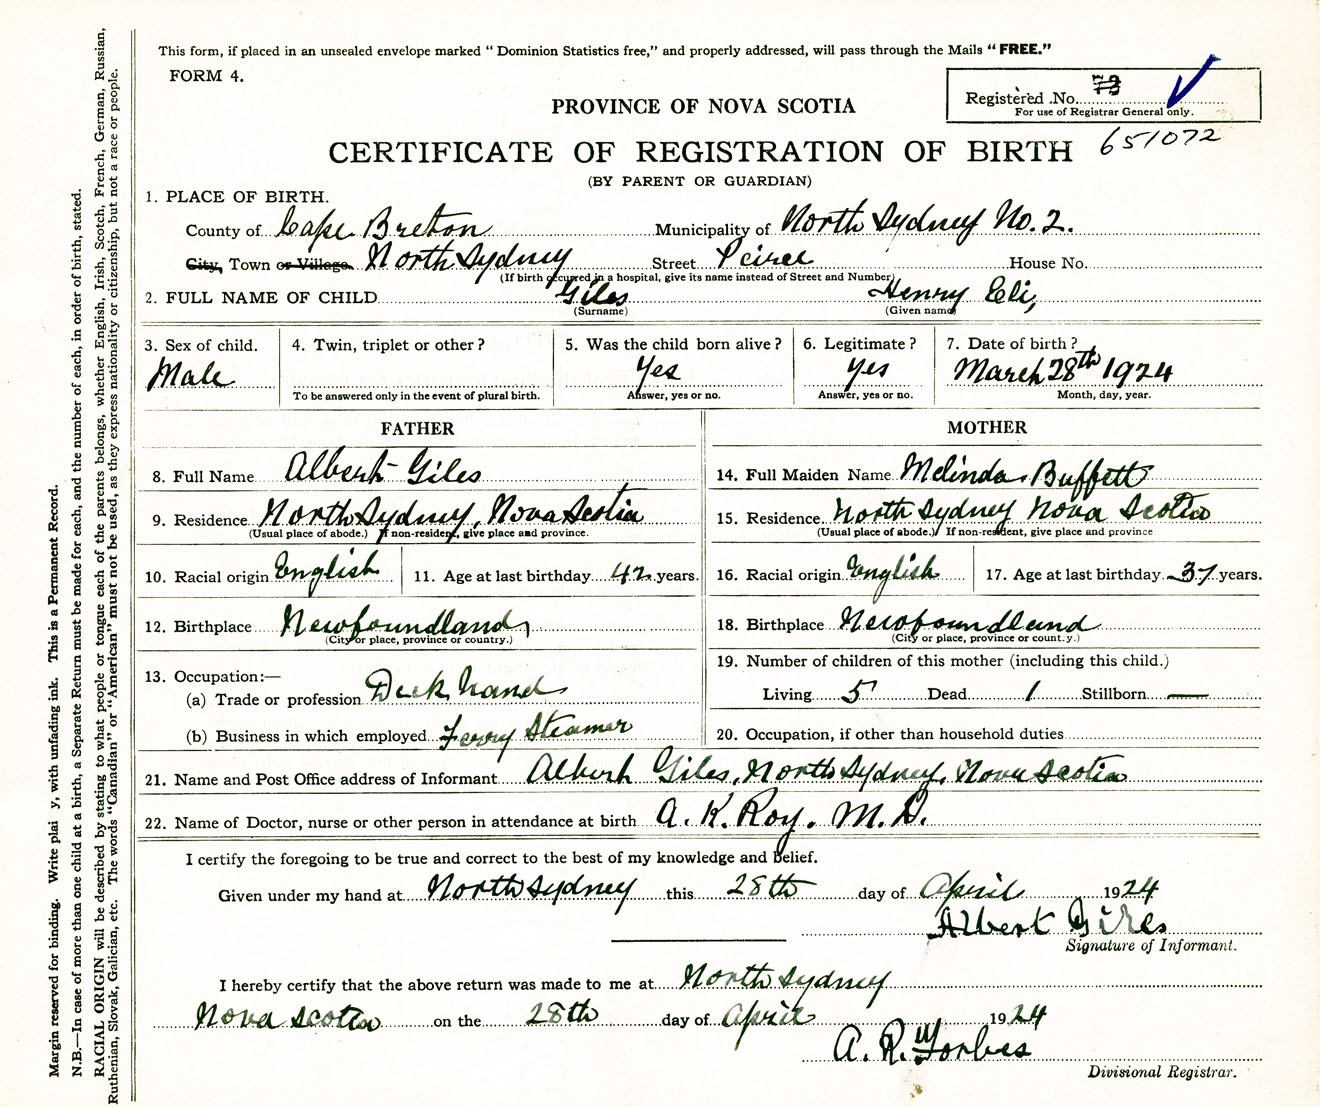 This form, if placed in an unsealed envelope marked " Dominion Statistics free," and properly addressed, will pass through the Mails " FREE."
FORM 4.
Registered No. 73
For use of Registrar General only.
651072
PROVINCE OF NOVA SCOTIA
CERTIFICATE OF REGISTRATION OF BIRTH
(BY PARENT OR GUARDIAN)
1. PLACE OF BIRTH.
County of Cape Breton Municipality of North Sydney No. 2.
City, Town or Village North Sydney Street Peirce House No.
(If birth occurred in a hospital, give its name instead of Street and Number)
2. FULL NAME OF CHILD Giles Henry Eli,
(Surname) (Given name)
3. Sex of child. 4. Twin, triplet or other ? 5. Was the child born alive ? 6. Legitimate ? 7. Date of birth ?
Male Yes Yes March 28th 1924
To be answered only in the event of plural birth. Answer, yes or no. Answer, yes or no. Month, day, year.
FATHER MOTHER
8. Full Name Albert Giles 14. Full Maiden Name Melinda Buffett
9. Residence North Sydney, Nova Scotia 15. Residence North Sydney Nova Scotia
(Usual place of abode.) If non-resident, give place and province. (Usual place of abode.) If non-resident, give place and province
10. Racial origin English 11. Age at last birthday 42 years. 16. Racial origin English 17. Age at last birthday 37 years.
12. Birthplace Newfoundland 18. Birthplace Newfoundland
(City or place, province or country.) (City or place, province or country.)
13. Occupation:— 19. Number of children of this mother (including this child.)
(a) Trade or profession Deck hand Living 5 Dead 1 Stillborn —
(b) Business in which employed Ferry Steamer 20. Occupation, if other than household duties
21. Name and Post Office address of Informant Albert Giles, North Sydney, Nova Scotia
22. Name of Doctor, nurse or other person in attendance at birth A. K. Roy. M. D.
I certify the foregoing to be true and correct to the best of my knowledge and belief.
Given under my hand at North Sydney this 28th day of April 1924
Albert Giles
Signature of Informant.
I hereby certify that the above return was made to me at North Sydney
Nova Scotia on the 28th day of April 1924
A. R. Forbes
Divisional Registrar.
Margin reserved for binding. Write plai y, with unfading ink. This is a Permanent Record.
N.B.—In case of more than one child at a birth, a Separate Return must be made for each, and the number of each, in order of birth, stated.
RACIAL ORIGIN will be described by stating to what people or tongue each of the parents belongs, whether English, Irish, Scotch, French, German, Russian,
Ruthenian, Slovak, Galician, etc. The words "Canadian" or "American" must not be used, as they express nationality or citizenship, but not a race or people.